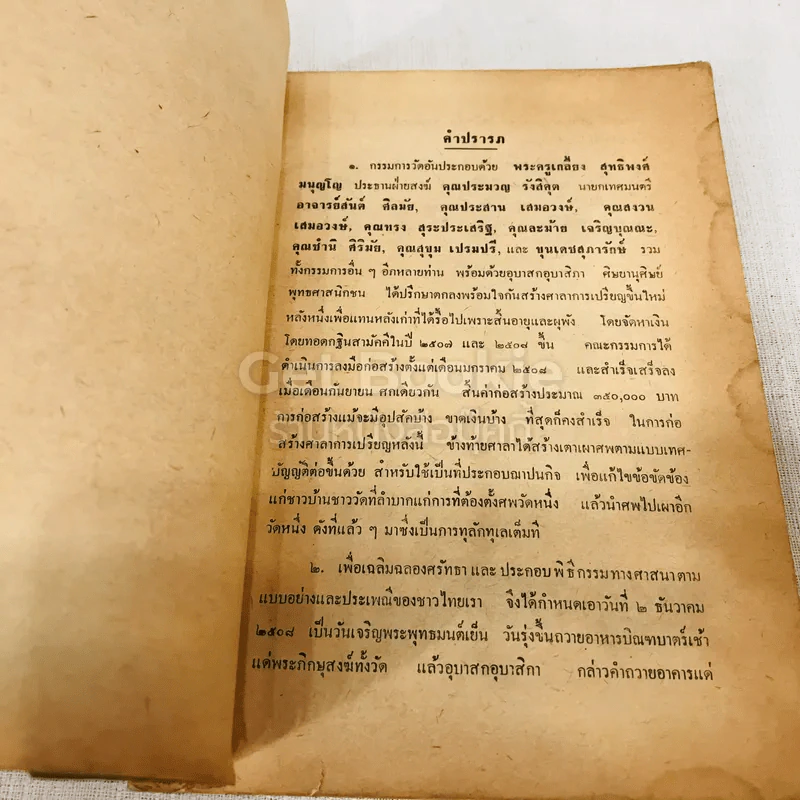 คำปรารภ
๑. กรรมการวัดอันประกอบด้วย พระครูเกลี้ยง สุทธิพงศ์
มนุญโญ ประธานฝ่ายสงฆ์ คุณประมวญ รังสิคุต นายกเทศมนตรี
อาจารย์สันต์ ศิลมัย, คุณประสาน เสมอวงษ์, คุณสงวน
เสมอวงษ์, คุณทรง สุระประเสริฐ, คุณละม้าย เจริญบุณณะ,
คุณชำนิ ศิริมัย, คุณสุขุม เปรมปรี, และ ขุนเดชสุภารักษ์ รวม
ทั้งกรรมการอื่น ๆ อีกหลายท่าน พร้อมด้วยอุบาสกอุบาสิภา ศิษยานุศิษย์
พุทธศาสนิกชน ได้ปรึกษาตกลงพร้อมใจกันสร้างศาลาการเปรียญขึ้นใหม่
หลังหนึ่งเพื่อแทนหลังเก่าที่ได้รื้อไปเพราะสิ้นอายุและผุพัง โดยจัดหาเงิน
โดยทอดกฐินสามัคคีในปี ๒๕๐๗ และ ๒๕๐๘ ขึ้น คณะกรรมการได้
ดำเนินการลงมือก่อสร้างตั้งแต่เดือนมกราคม ๒๕๐๘ และสำเร็จเสร็จลง
เมื่อเดือนกันยายน ศกเดียวกัน สิ้นค่าก่อสร้างประมาณ ๓๕๐,๐๐๐ บาท
การก่อสร้างแม้จะมีอุปสัคบ้าง ขาดเงินบ้าง ที่สุดก็คงสำเร็จ ในการก่อ
สร้างศาลาการเปรียญหลังนี้ ข้างท้ายศาลาได้สร้างเตาเผาศพตามแบบเทศ-
บัญญัติต่อขึ้นด้วย สำหรับใช้เป็นที่ประกอบฌาปนกิจ เพื่อแก้ไขข้อขัดข้อง
แก่ชาวบ้านชาววัดที่ลำบากแก่การที่ต้องตั้งศพวัดหนึ่ง แล้วนำศพไปเผาอีก
วัดหนึ่ง ดังที่แล้ว ๆ มาซึ่งเป็นการทุลักทุเลเต็มที
๒. เพื่อเฉลิมฉลองศรัทธา และ ประกอบพิธีกรรมทางศาสนาตาม
แบบอย่างและประเพณีของชาวไทยเรา จึงได้กำหนดเอาวันที่ ๒ ธันวาคม
๒๕๐๘ เป็นวันเจริญพระพุทธมนต์เย็น วันรุ่งขึ้นถวายอาหารบิณฑบาตร์เช้า
แด่พระภิกษุสงฆ์ทั้งวัด แล้วอุบาสกอุบาสิกา กล่าวคำถวายอาคารแด่